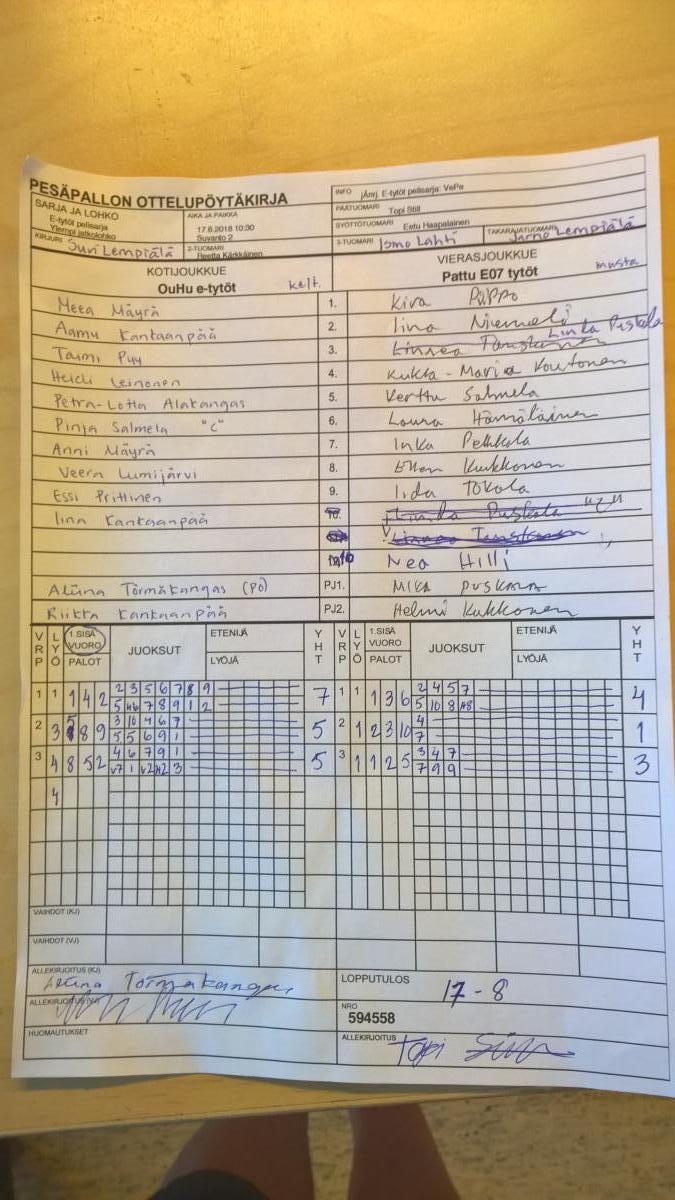 PESÄPALLON OTTELUPÖYTÄKIRJA
SARJA JA LOHKO
E-tytöt pelisarja
Ylempi jatkolohko
AIKA JA PAIKKA
17.6.2018 10:30
Suvanto 2
INFO jAnrj. E-tytöt pelisarja: VePe
PÄÄTUOMARI Topi Siili
SYÖTTÖTUOMARI Eetu Haapalainen
KIRJURI Suvi Lempiälä
2-TUOMARI Reetta Kärkkäinen
3-TUOMARI Ismo Lahti
TAKARAJATUOMARI Jarno Lempiälä
KOTIJOUKKUE
OuHu e-tytöt kelt.
VIERASJOUKKUE
Pattu E07 tytöt musta
Meea Mäyrä 1. Kira Puppo
Aamu Kantaanpää 2. Iina Niemelä
Taimi Puy 3. Linnea Tanskanen Linka Puskala
Heidi Leinonen 4. Kukka-Maria Koutonen
Petra-Lotta Alakangas 5. Verttu Salmela
Pinja Salmela "C" 6. Laura Hämäläinen
Anni Mäyrä 7. Inka Pelkkala
Veera Lumijärvi 8. Ellen Kukkonen
Essi Prittinen 9. Iida Tokola
Iina Kantaanpää 10. Puskala
Linnea Tanskanen
10 Nea Hilli
Alina Törmäkangas (PO) PJ1. MIKA PUSKALA
Riikka Kantaanpää PJ2. Helmi Kukkonen
VRP LYÖ 1.SISÄ VUORO PALOT JUOKSUT ETENIJÄ LYÖJÄ YHT VRP LYÖ 1.SISÄ VUORO PALOT JUOKSUT ETENIJÄ LYÖJÄ YHT
1 1 1 4 2 2 3 5 6 7 8 9 7 1 1 1 3 6 2 4 5 7 4
5 H6 7 8 9 1 2 5 10 8 H8
2 3 5 8 9 3 10 4 6 7 5 2 1 2 3 10 4 1
5 5 6 9 1 7
3 4 8 5 2 4 6 7 9 1 5 3 1 1 2 5 3 4 7 3
v7 1 v2 H2 3 7 9 9
4
VAIHDOT (KJ)
VAIHDOT (VJ)
ALLEKIRJOITUS (KJ) Alina Törmäkangas
LOPPUTULOS 17 - 8
ALLEKIRJOITUS (VJ)
NRO
594558
HUOMAUTUKSET
ALLEKIRJOITUS Topi